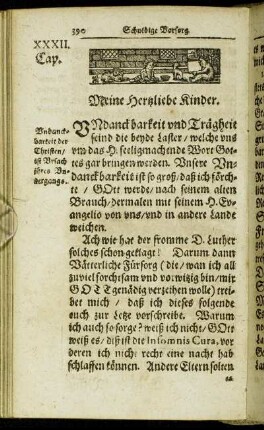 390 Schuldige Vorsorg.
XXXII.
Cap.
Meine Hertzliebe Kinder.
Vndanck-
barkeit der
Christen/
ist Vrsach
jhres Vn-
tergangs.
VNdanckbarkeit vnd Trägheit
seind die beyde Laster/ welche vns
vm das H. seeligmachende Wort Got-
tes gar bringen werden. Vnsere Vn-
danckbarkeit ist so groß/ daß ich förch-
te/ GOtt werde/ nach seinem alten
Brauch/ dermalen mit seinem H. Ev-
angelio von vns/ vnd in andere Lande
weichen.
Ach wie hat der fromme D. Luther
solches schon geklagt! Darum dann
Vätterliche Fürsorg (die/ wan ich all
zuviel sorchtsam vnd vorwitzig bin/ mir
GOTT genädig verzeihen wolle) trei-
bet mich/ daß ich dieses folgende
euch zur Letze vorschreibe. Warum
ich auch so sorge? weiß ich nicht/ GOtt
weiß es/ diß ist die Insomnis Cura, vor
deren ich nicht recht eine nacht hab
schlaffen können. Andere Eltern solten
es